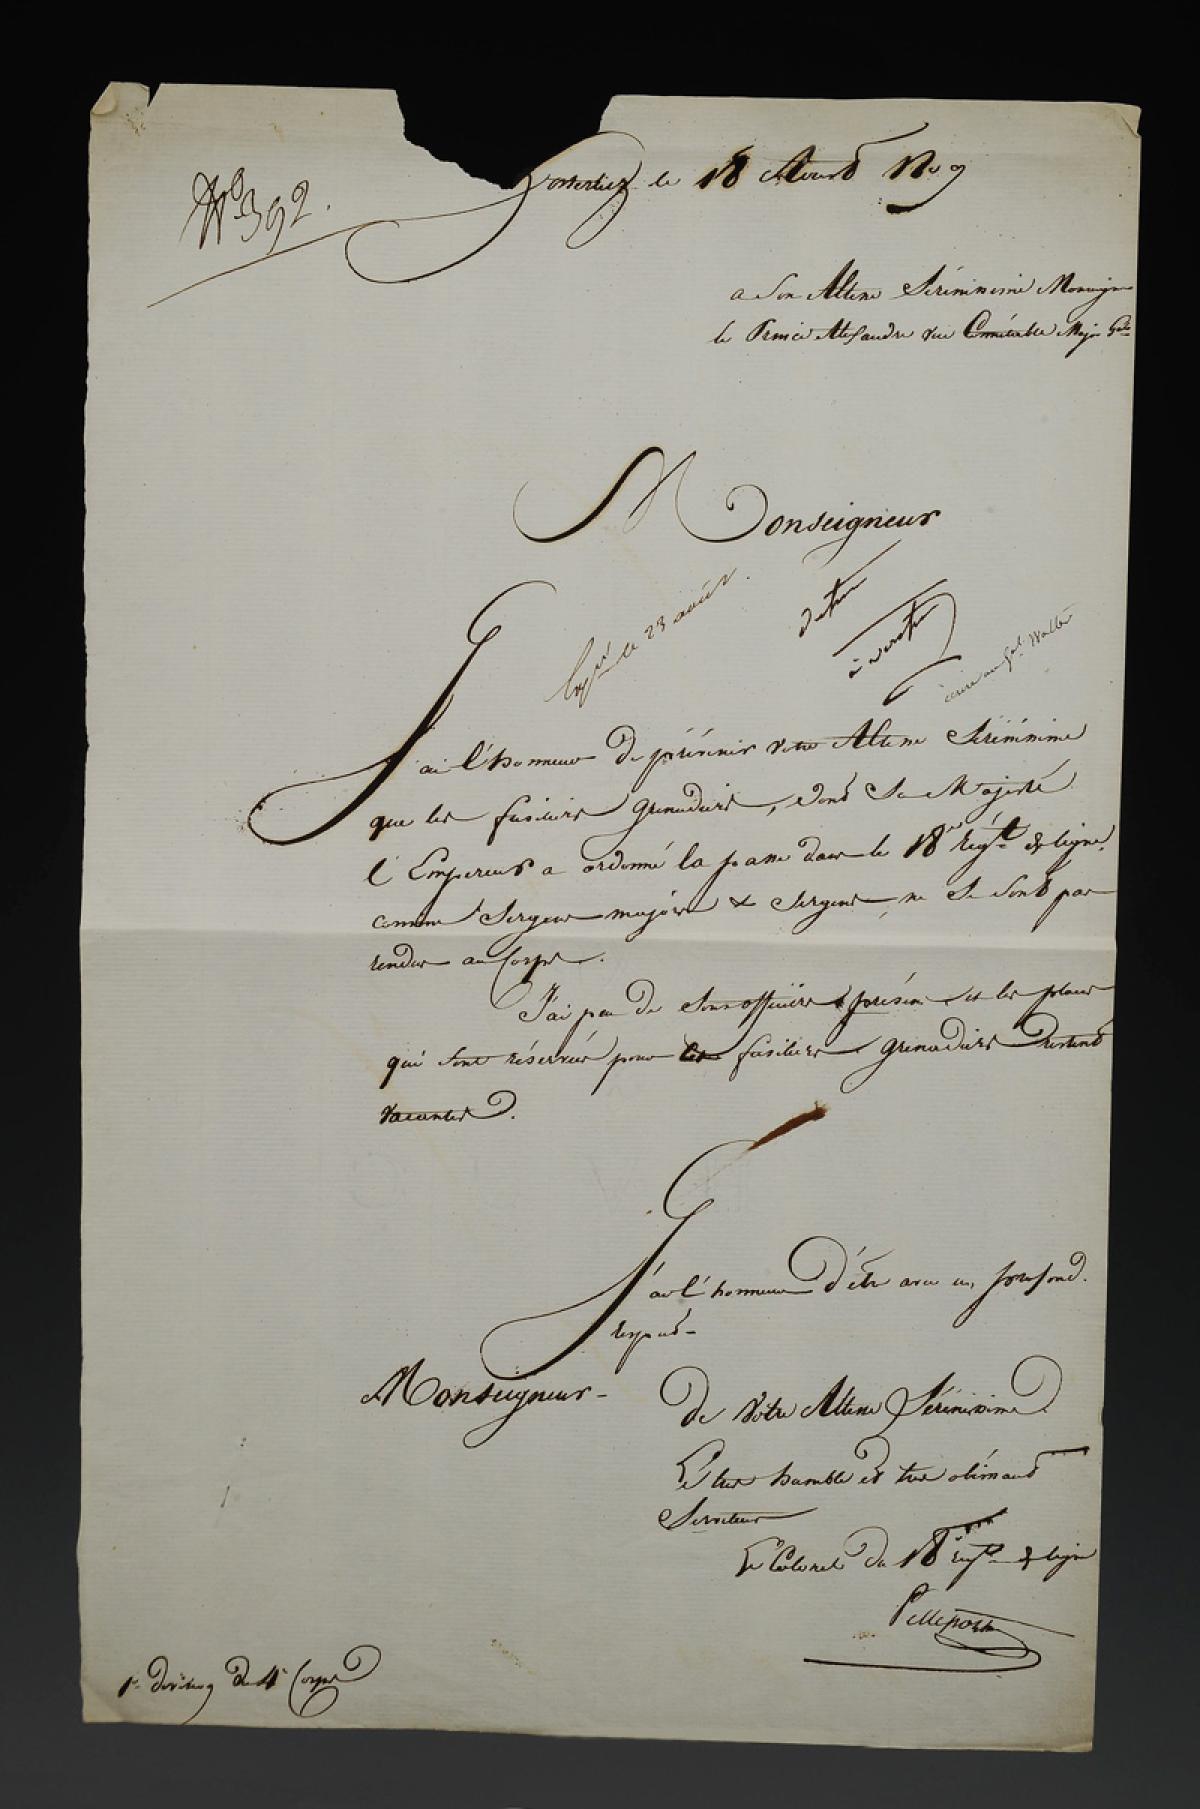 No 392.
le 18 Aoust 1809
a Son Altesse Sérénissime Monseigneur
le Prince Alexandre vice Connétable Major Gal
Monseigneur
Expé le 23 août.
écrire au Gal. Walter
J'ai l'honneur de prévenir votre Altesse Sérénissime
que les fusiliers Grenadiers, dont Sa Majesté
l'Empereur a ordonné la passe dans le 18e regt de ligne,
comme Sergens majors & Sergens, ne se sont pas
rendus au Corps.
J'ai peu de Sous officiers présens et les places
qui sont réservées pour les fusiliers Grenadiers restent
vacantes.
J'ai l'honneur d'être avec un profond
respect
Monseigneur
De Votre Altesse Sérénissime
Le très humble et très obéissant
Serviteur
Le Colonel du 18e regt de ligne
Pelleport
1e division du 4e Corps